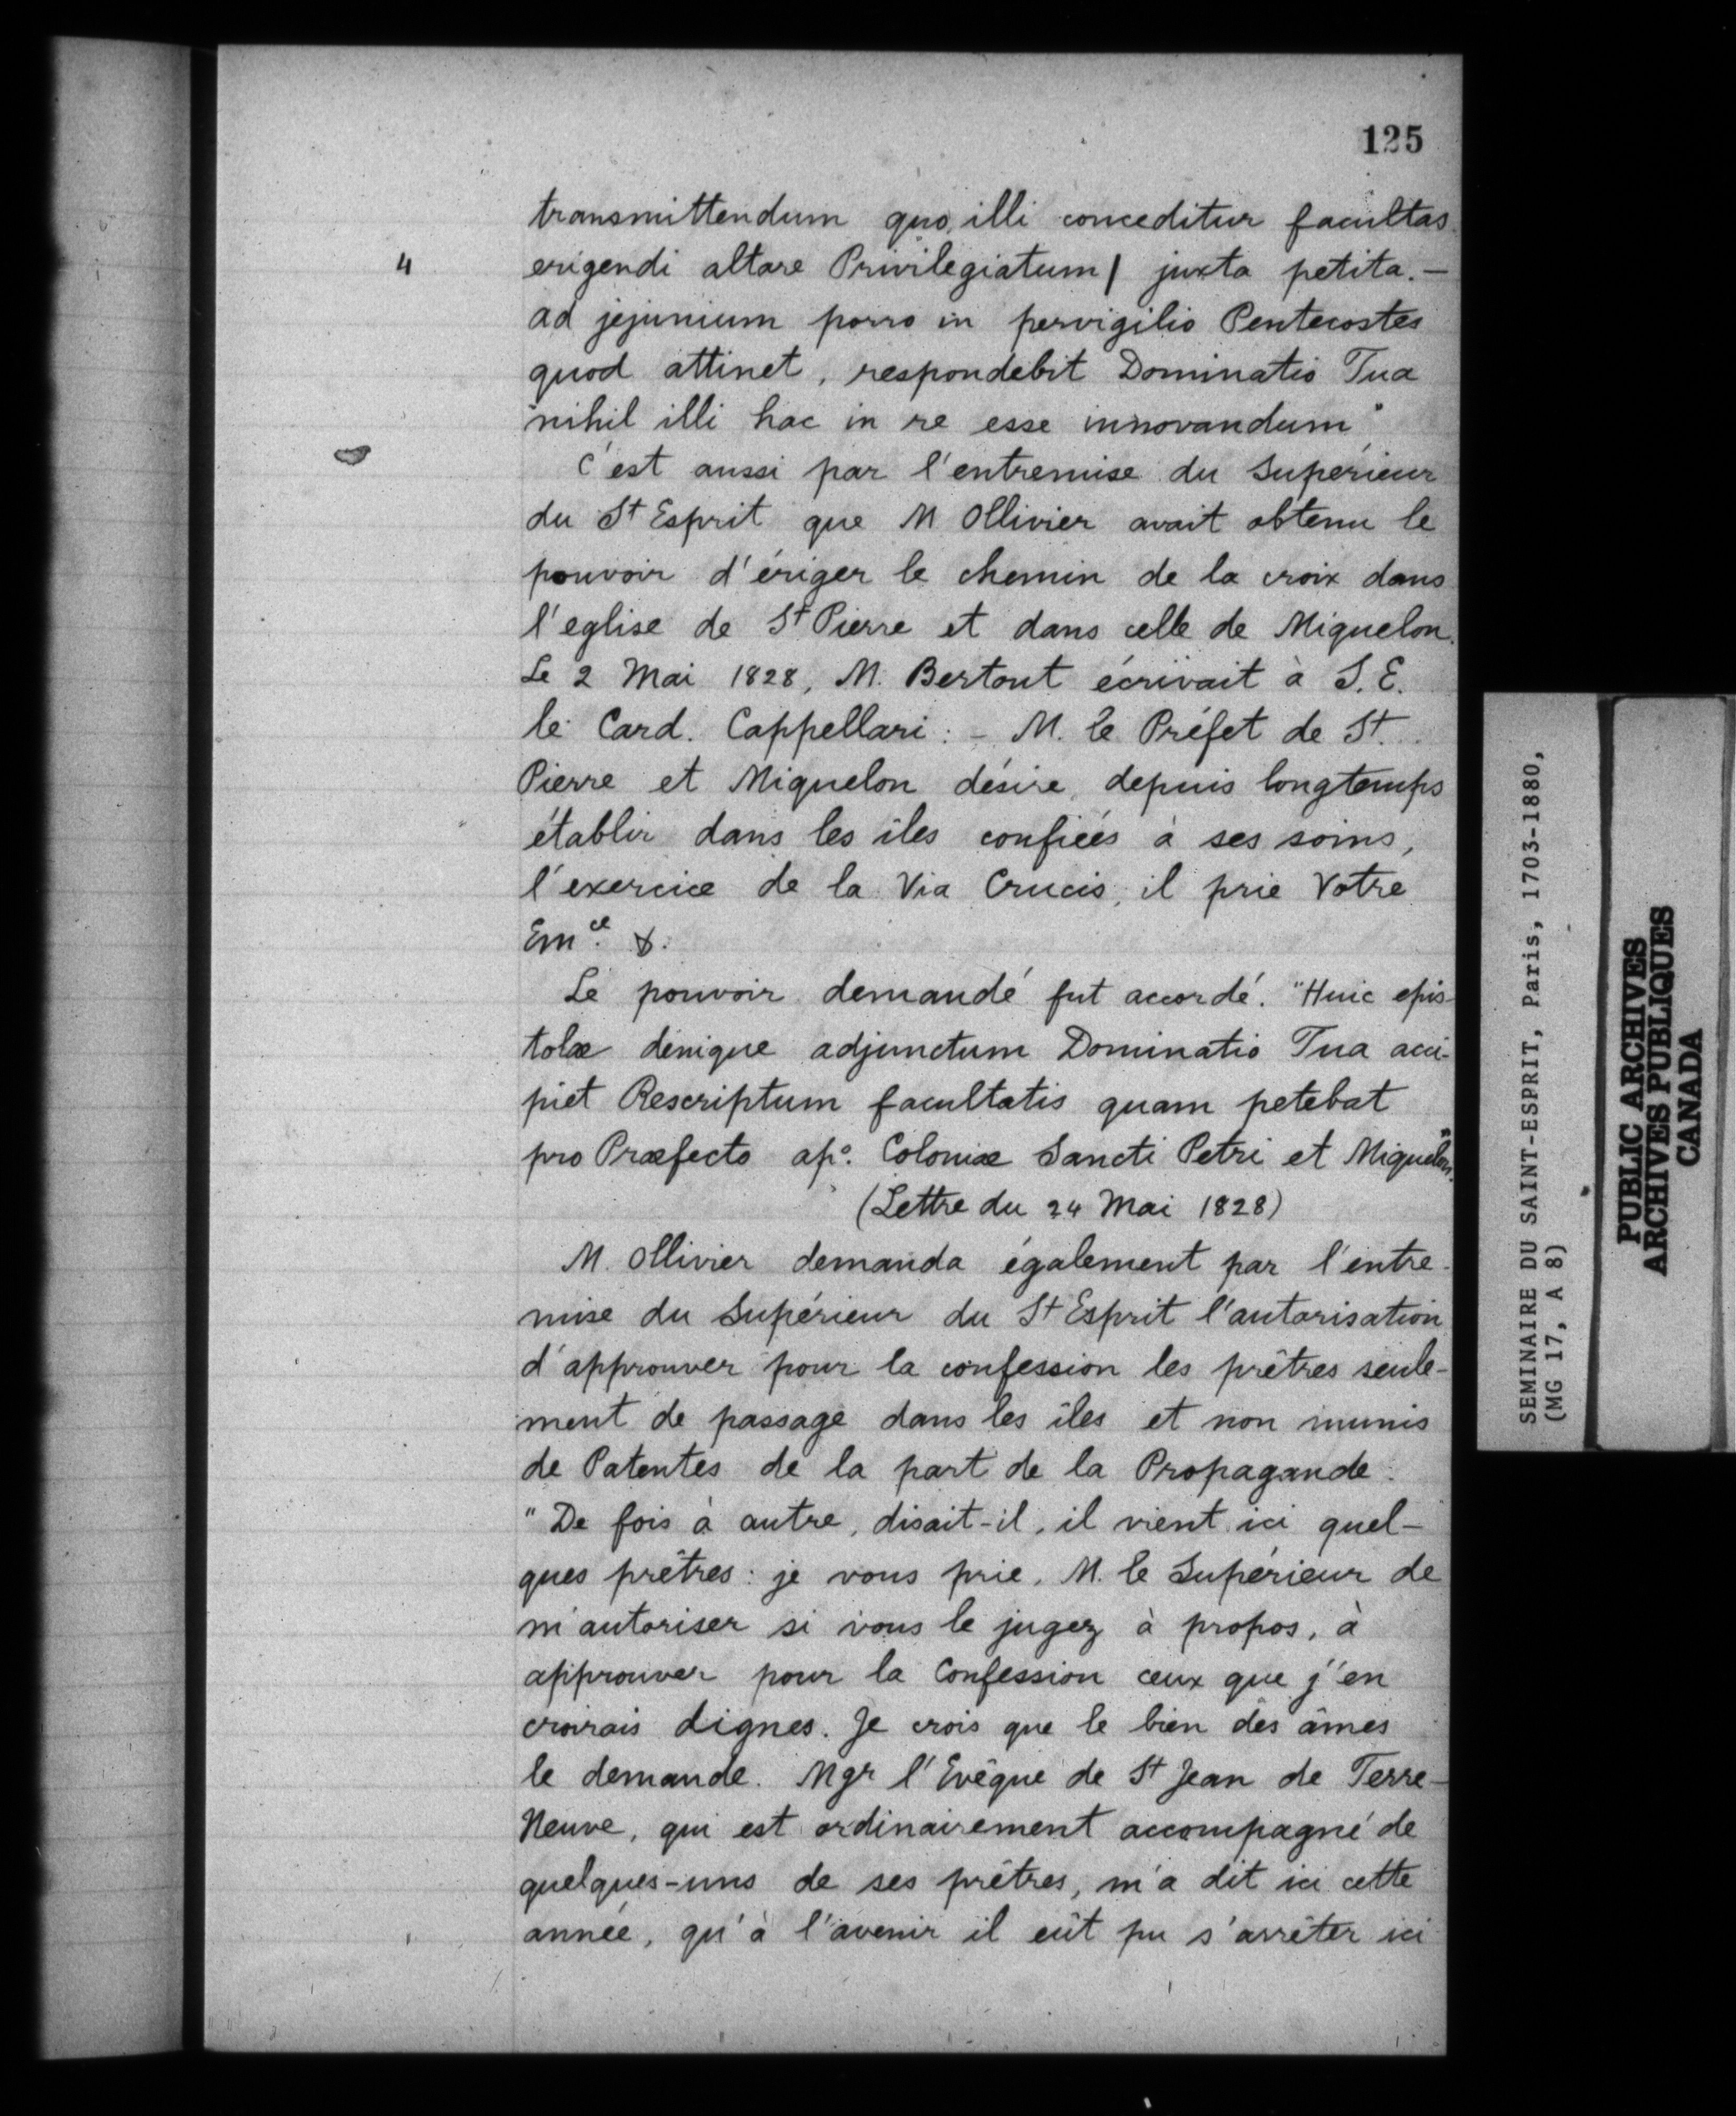 125
transmittendum quo illi conceditur facultas
4
erigendi altare Privilegiatum / juxta petita. —
ad jejunium porro in pervigilio Pentecostes
quod attinet, respondebit Dominatio Tua
nihil illi hac in re esse innovandum"
C'est aussi par l'entremise du Supérieur
du St Esprit que M Ollivier avait obtenu le
pouvoir d'ériger le chemin de la croix dans
l'eglise de St Pierre et dans celle de Miquelon.
Le 2 Mai 1828, M. Bertout écrivait à S. E.
le Card. Cappellari : - M. le Préfet de St.
Pierre et Miquelon désire depuis longtemps
établir dans les îles confiées à ses soins,
l'exercice de la Via Crucis, il prie Votre
Emce. &.
Le pouvoir demandé fut accordé. "Huic epis-
tolæ denique adjunctum Dominatio Tua acci-
piet Rescriptum facultatis quam petebat
pro Præfecto apo. Coloniæ Sancti Petri et Miquelon."
(Lettre du 24 Mai 1828)
M. Ollivier demanda également par l'entre-
mise du Supérieur du St Esprit l'autorisation
d'approuver pour la confession les prêtres seule-
ment de passage dans les îles et non munis
de Patentes de la part de la Propagande.
"De fois à autre, disait-il, il vient ici quel-
ques prêtres : je vous prie, M. le Supérieur de
m'autoriser si vous le jugez à propos, à
approuver pour la Confession ceux que j'en
croirais dignes. Je crois que le bien des âmes
le demande. Mgr l'Evêque de St Jean de Terre-
Neuve, qui est ordinairement accompagné de
quelques-uns de ses prêtres, m'a dit ici cette
année, qu'à l'avenir il eût pu s'arrêter ici
SEMINAIRE DU SAINT-ESPRIT, Paris, 1703-1880,
(MG 17, A 8)
PUBLIC ARCHIVES
ARCHIVES PUBLIQUES
CANADA